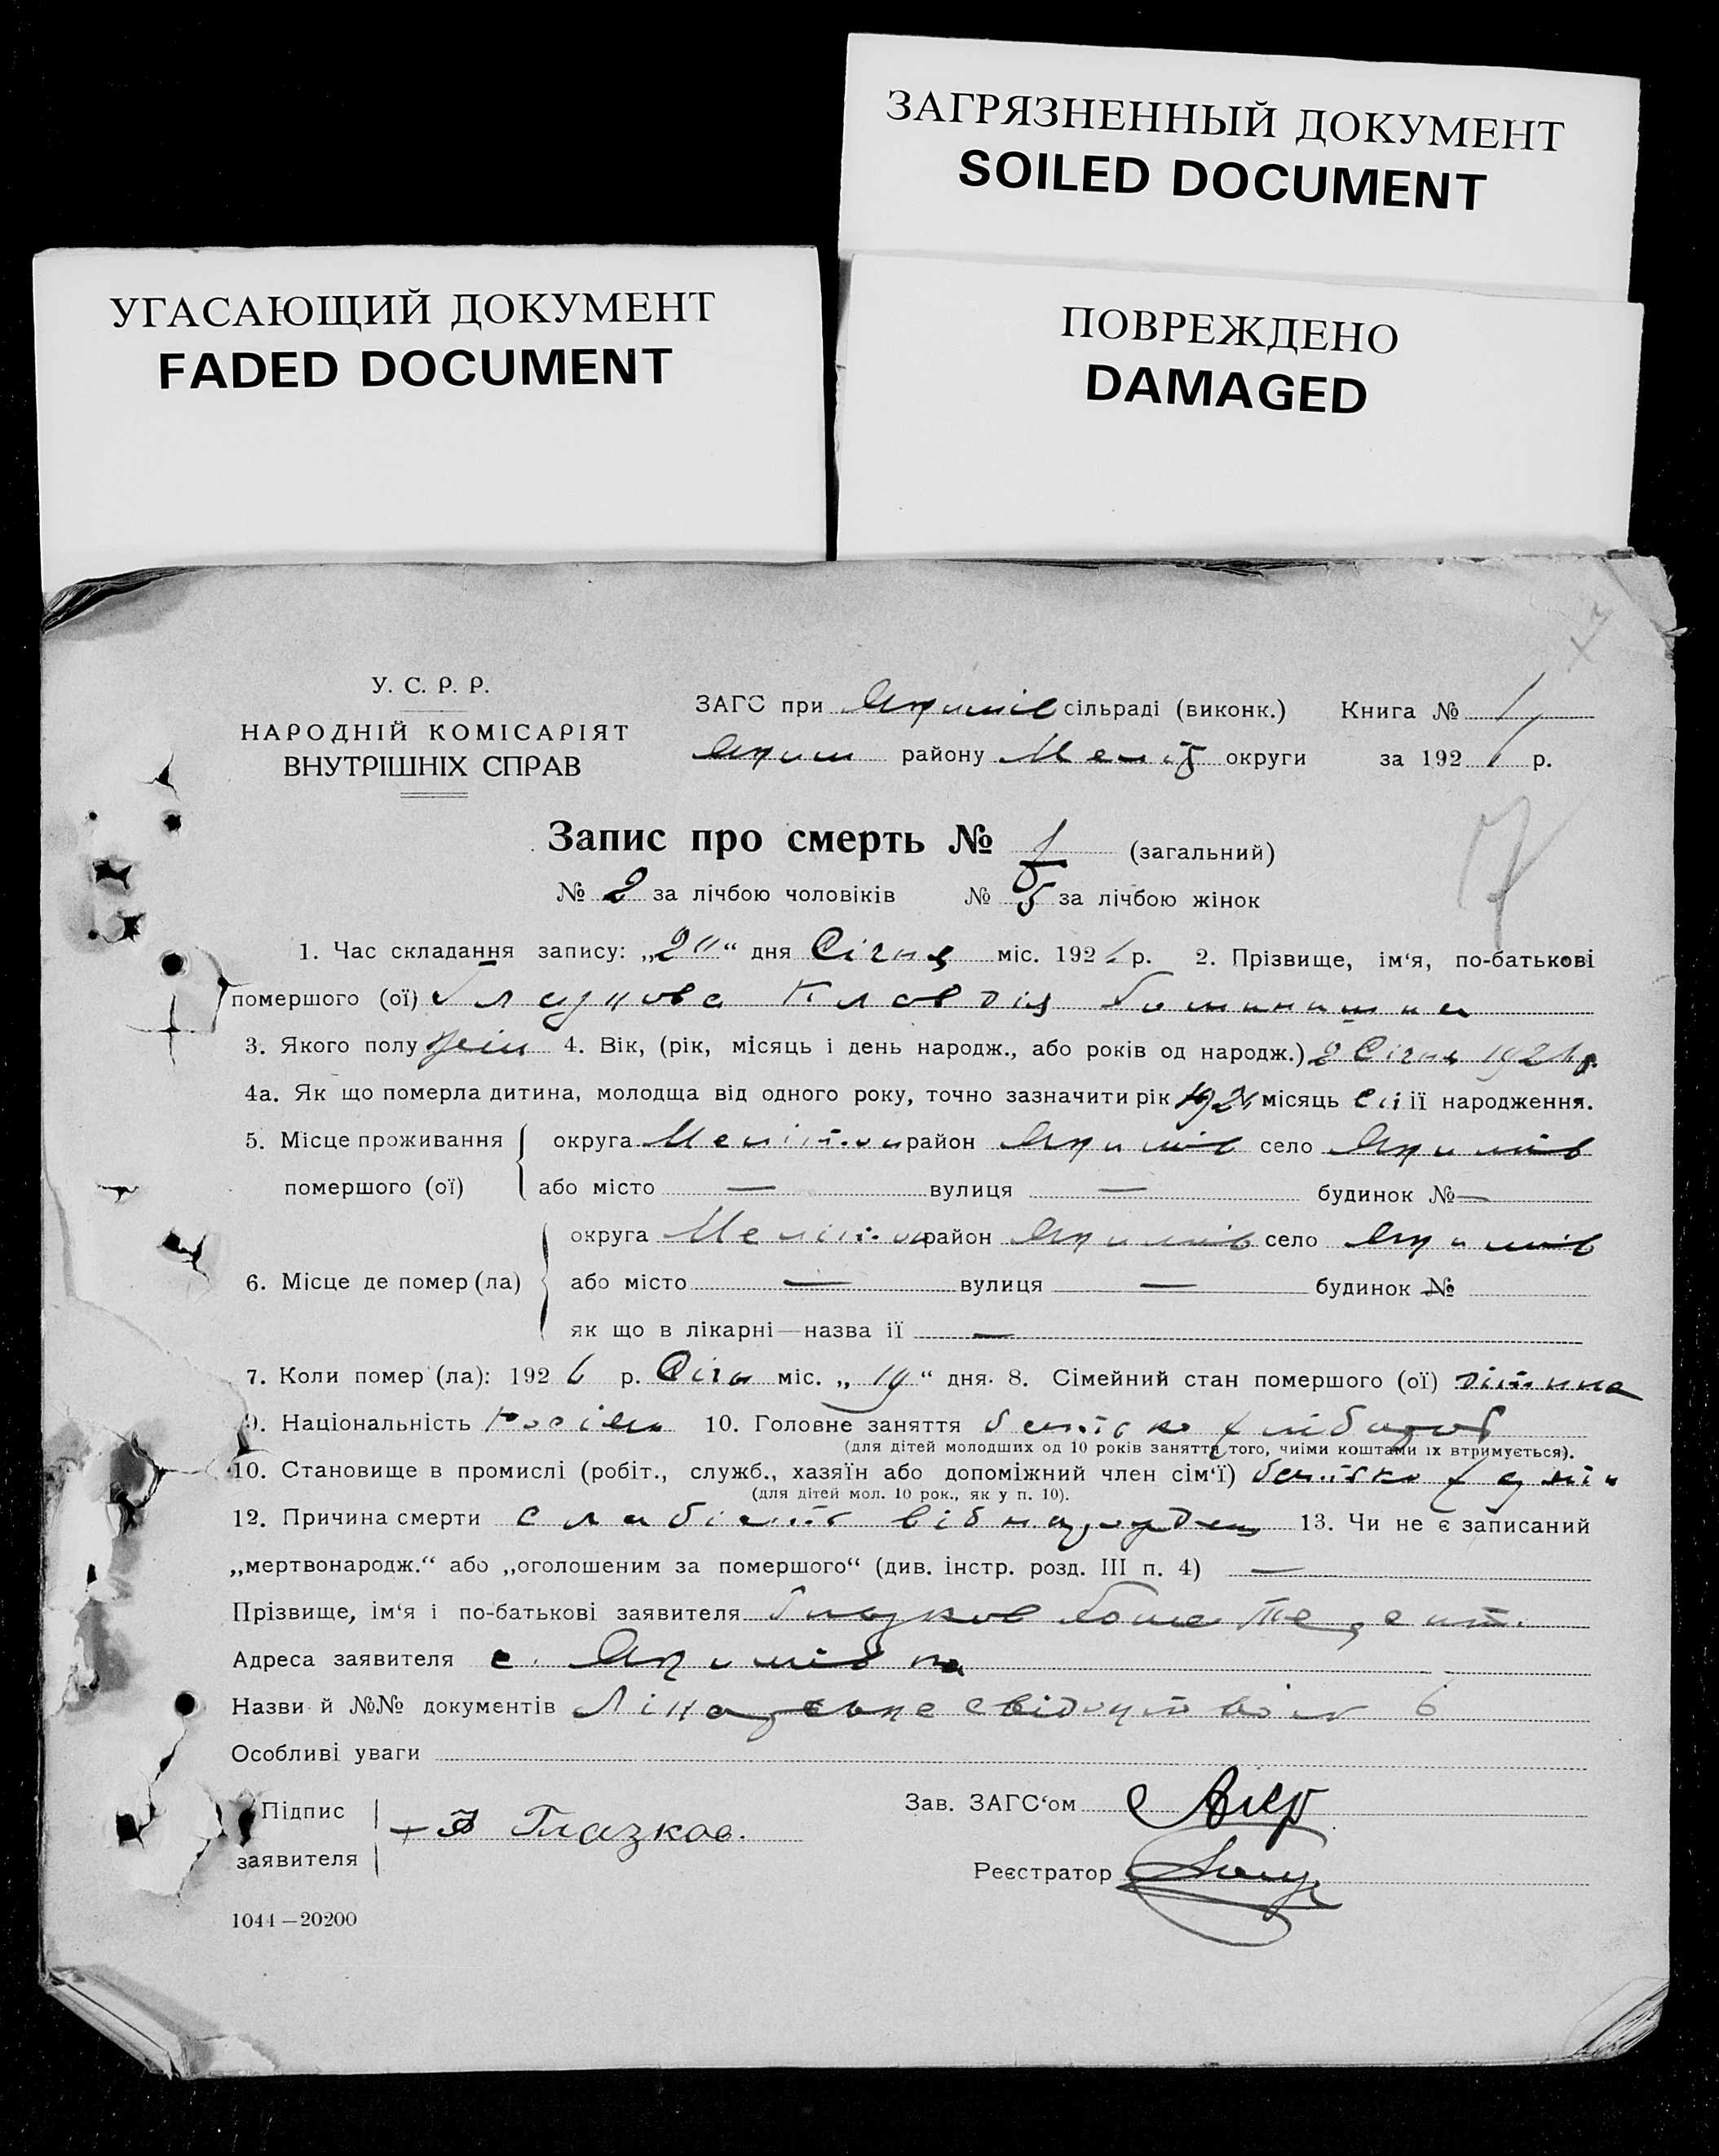 ЗАГРЯЗНЕННЫЙ ДОКУМЕНТ
SOILED DOCUMENT
УГАСАЮЩИЙ ДОКУМЕНТ
FADED DOCUMENT
ПОВРЕЖДЕНО
DAMAGED
У. С. Р. Р.
НАРОДНІЙ КОМІСАРІЯТ
ВНУТРІШНІХ СПРАВ
ЗАГС при Якимів сільраді (виконк.) Книга № 1
Яким району Меліт округи за 192 р.
Запис про смерть № (загальний)
№ 2 за лічбою чоловіків № 5 за лічбою жінок
1. Час складання запису: „20“ дня Січня міс. 192 р. 2. Прізвище, ім‘я, по-батькові
помершого (ої) Глазкова Клавдія
3. Якого полу жін 4. Вік, (рік, місяць і день народж., або років од народж.) 2 Січня 192 р.
4а. Як що померла дитина, молодща від одного року, точно зазначити рік місяць Січ її народження.
5. Місце проживання округа Мелітоп район Якимів село Якимів
помершого (ої) або місто — вулиця — будинок № —
6. Місце де помер (ла) округа Мелітоп район Якимів село Якимів
або місто — вулиця — будинок №
як що в лікарні—назва її —
7. Коли помер (ла): 1926 р. Січн міс. „19“ дня. 8. Сімейний стан помершого (ої) дитина
9. Національність Росіян 10. Головне заняття батько хлібороб
(для дітей молодших од 10 років заняття того, чиїми коштами їх втримується).
10. Становище в промислі (робіт., служб., хазяїн або допоміжний член сім‘ї) батько
(для дітей мол. 10 рок., як у п. 10).
12. Причина смерти слабість від народжен 13. Чи не є записаний
„мертвонародж.“ або „оголошеним за помершого“ (див. інстр. розд. III п. 4) —
Прізвище, ім‘я і по-батькові заявителя Глазков
Адреса заявителя с. Якимівка
Назви й №№ документів Лікарське свідоцтво 6
Особливі уваги
Підпис заявителя Глазков.
Зав. ЗАГС‘ом
Реєстратор
1044—20200